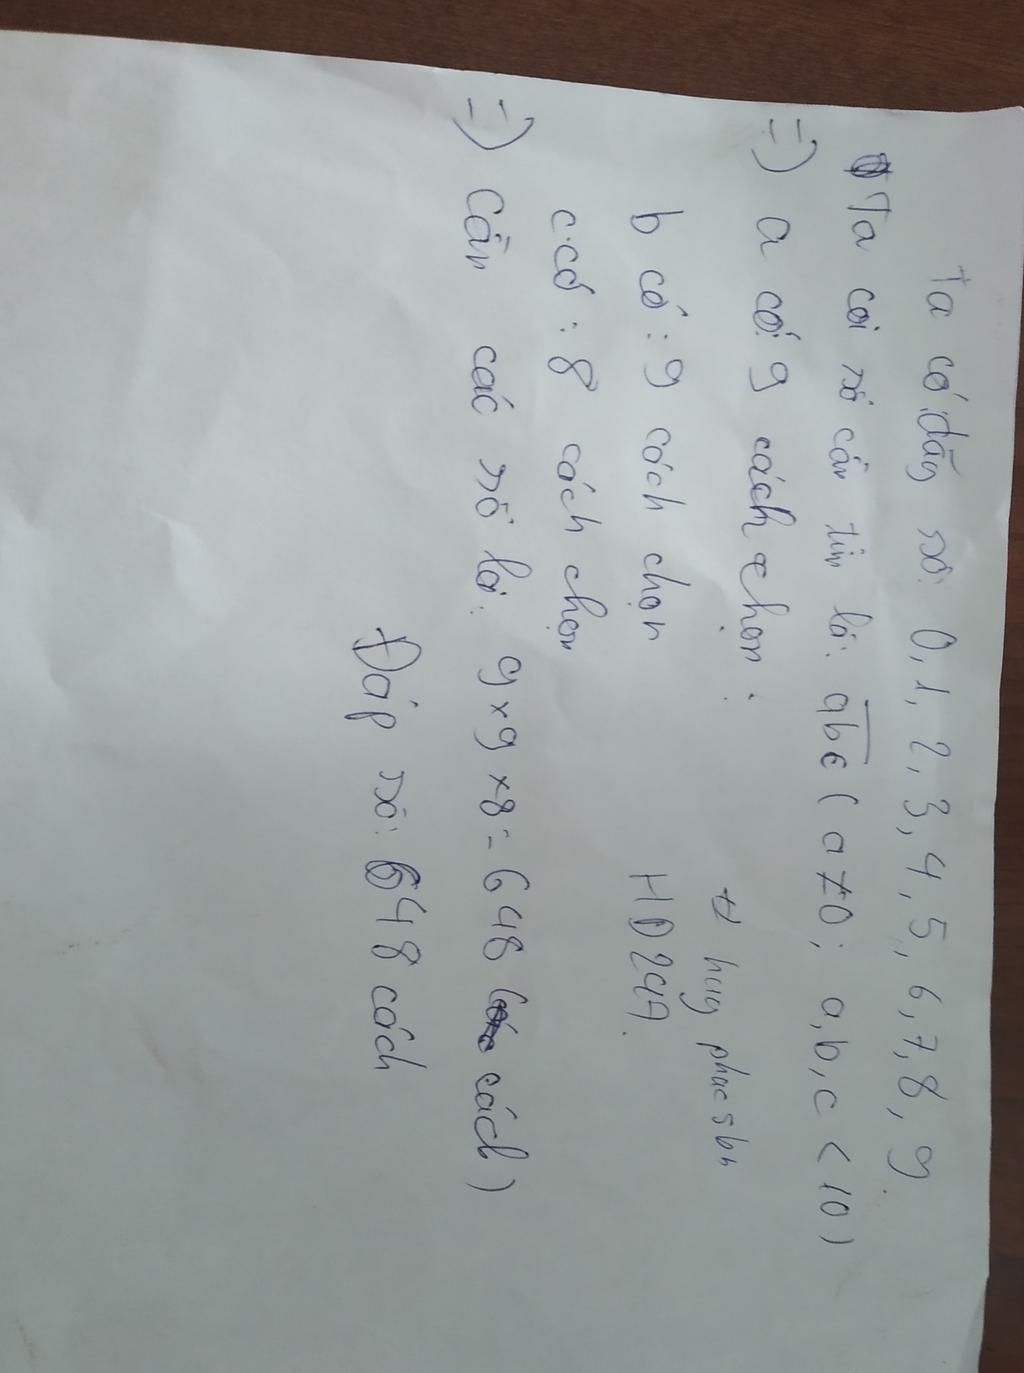 Ta có dãy số: 0, 1, 2, 3, 4, 5, 6, 7, 8, 9
Ta coi số cần tìm là: abc ( a ≠ 0; a, b, c < 10 )
=) a có 9 cách chọn :
b có : 9 cách chọn
c có : 8 cách chọn
=) Cần các số là: 9 x 9 x 8 = 648 cách )
Đáp số: 648 cách
huy phuc 5bn
HD247.